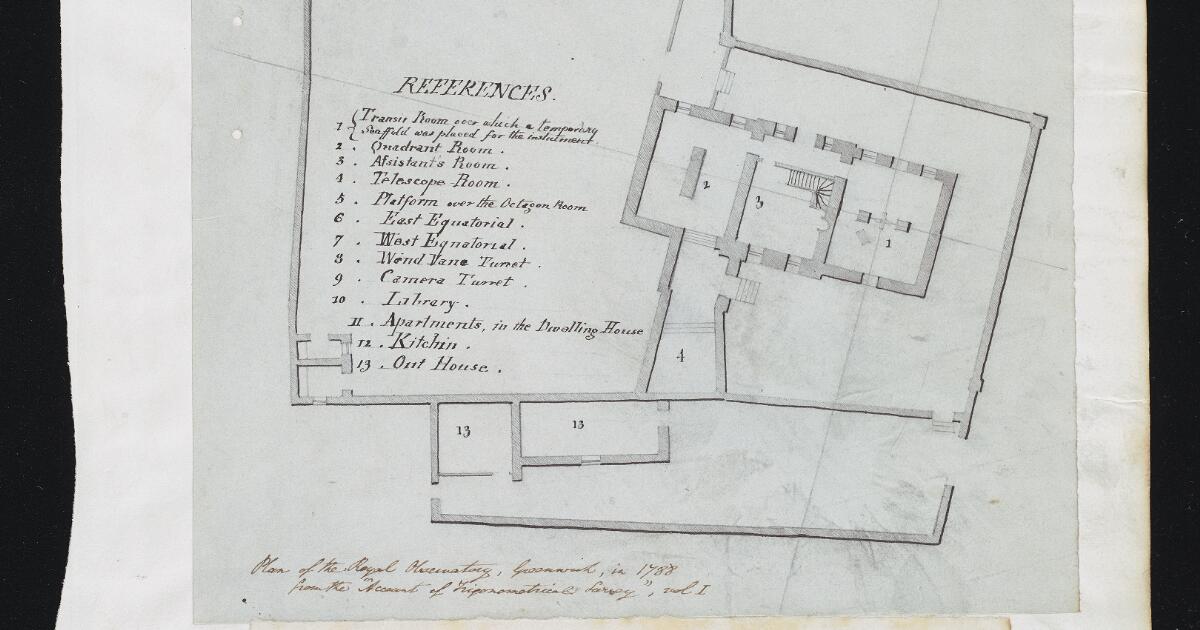 REFERENCES.
1 { Transit Room over which a temporary
Scaffold was placed for the instrument.
2 . Quadrant Room .
3 . Assistant's Room .
4 . Telescope Room .
5 . Platform over the Octagon Room
6 . East Equatorial .
7 . West Equatorial .
8 . Wind Vane Turret .
9 . Camera Turret .
10 . Library .
11 . Apartments, in the Dwelling House
12 . Kitchin .
13 . Out House .
2
3
1
4
13
13
Plan of the Royal Observatory, Greenwich, in 1788
from the "Account of Trigonometrical Survey", vol I